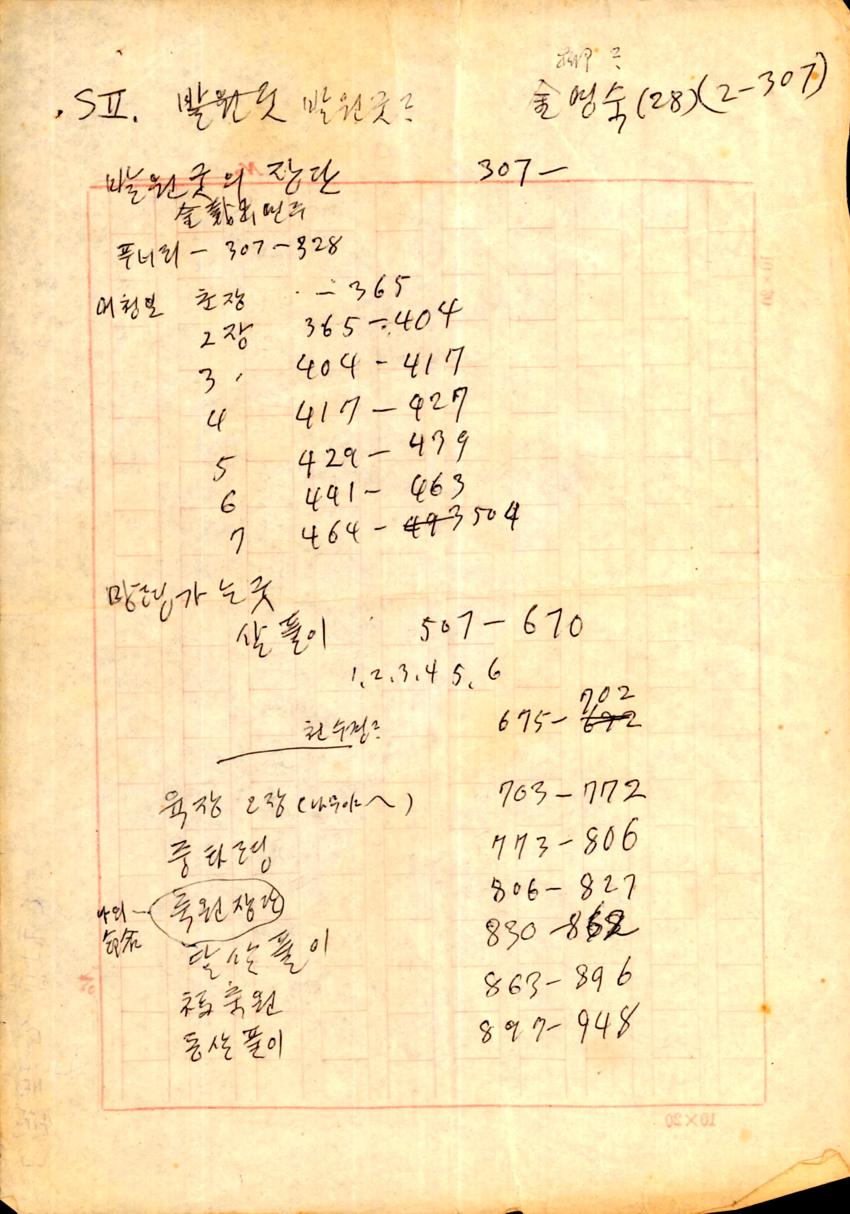 SII. 발원굿 발원굿
金영숙(28)(2-307)
발원굿의 장단 307-
푸너리 - 307-328
여청보 초장 - 365
2장 365-404
3 〃 404-417
4 417-427
5 429-439
6 441-463
7 464-493 504
망령가는굿
살풀이 507-670
1.2.3.4 5.6
천수경 702
675-692
육장 2장(나무야~) 703-772
중타령 773-806
축원장단 806-827
830-862
달살풀이
福축원 863-896
동살풀이 897-948
10×20